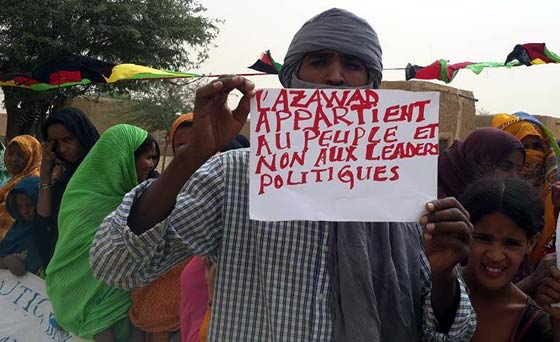 L'AZAWAD
APPARTIENT
AU PEUPLE ET
NON AUX LEADERS
POLITIQUES